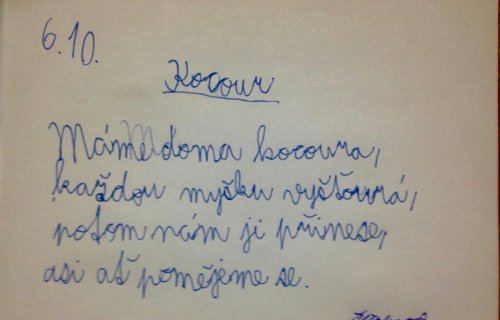 6.10.
Kocour
Máme doma kocoura,
každou myšku vyšťourá,
potom nám ji přinese,
asi ať pomějeme se.